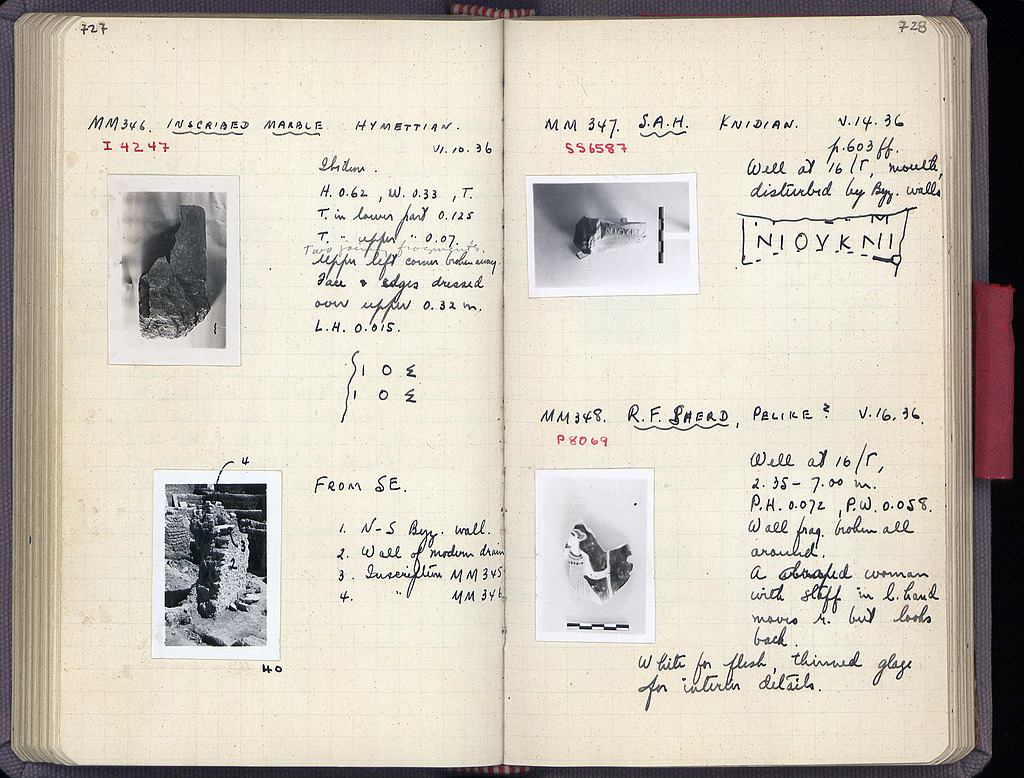 727
MM346. INSCRIBED MARBLE HYMETTIAN.
I 4247
VI.10.36
Ibidem.
H. 0.62, W. 0.33, T.
T. in lower part 0.125
T. " upper " 0.07.
Two joining fragments.
Upper left corner broken away.
Face & edges dressed
over upper 0.32 m.
L.H. 0.015.
Ι Ο Σ
Ι Ο Σ
4
FROM SE.
1. N-S Byz. wall.
2. Wall of modern drain
3. Inscription MM 345
4. " MM 346
40
728
MM 347. S.A.H. KNIDIAN. V.14.36
SS6587
p.603 ff.
Well at 16/Γ, mouth,
disturbed by Byz. walls
Μ
ΝΙΟΥΚΝΙ
MM348. R.F. SHERD, PELIKE? V.16.36.
P8069
Well at 16/Γ,
2.35-7.00 m.
P.H. 0.072, P.W. 0.058.
Wall frag. broken all
around.
A draped woman
with staff in l. hand
moves r. but looks
back.
White for flesh, thinned glaze
for interior details.